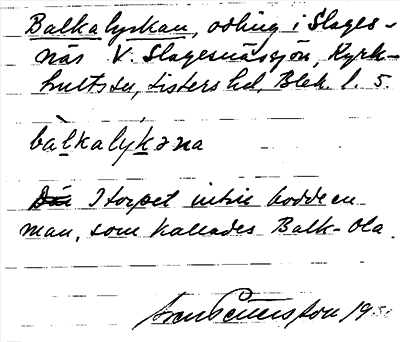 Balkalyckan, odling i Slages-
näs V. Slagesnäs­sjön, Kyrk-
hultssn, Listers hd, Blek. l. 5.
bàlkalýkəna
I torpet intill bodde en
man, som kallades Balk-Ola.
19